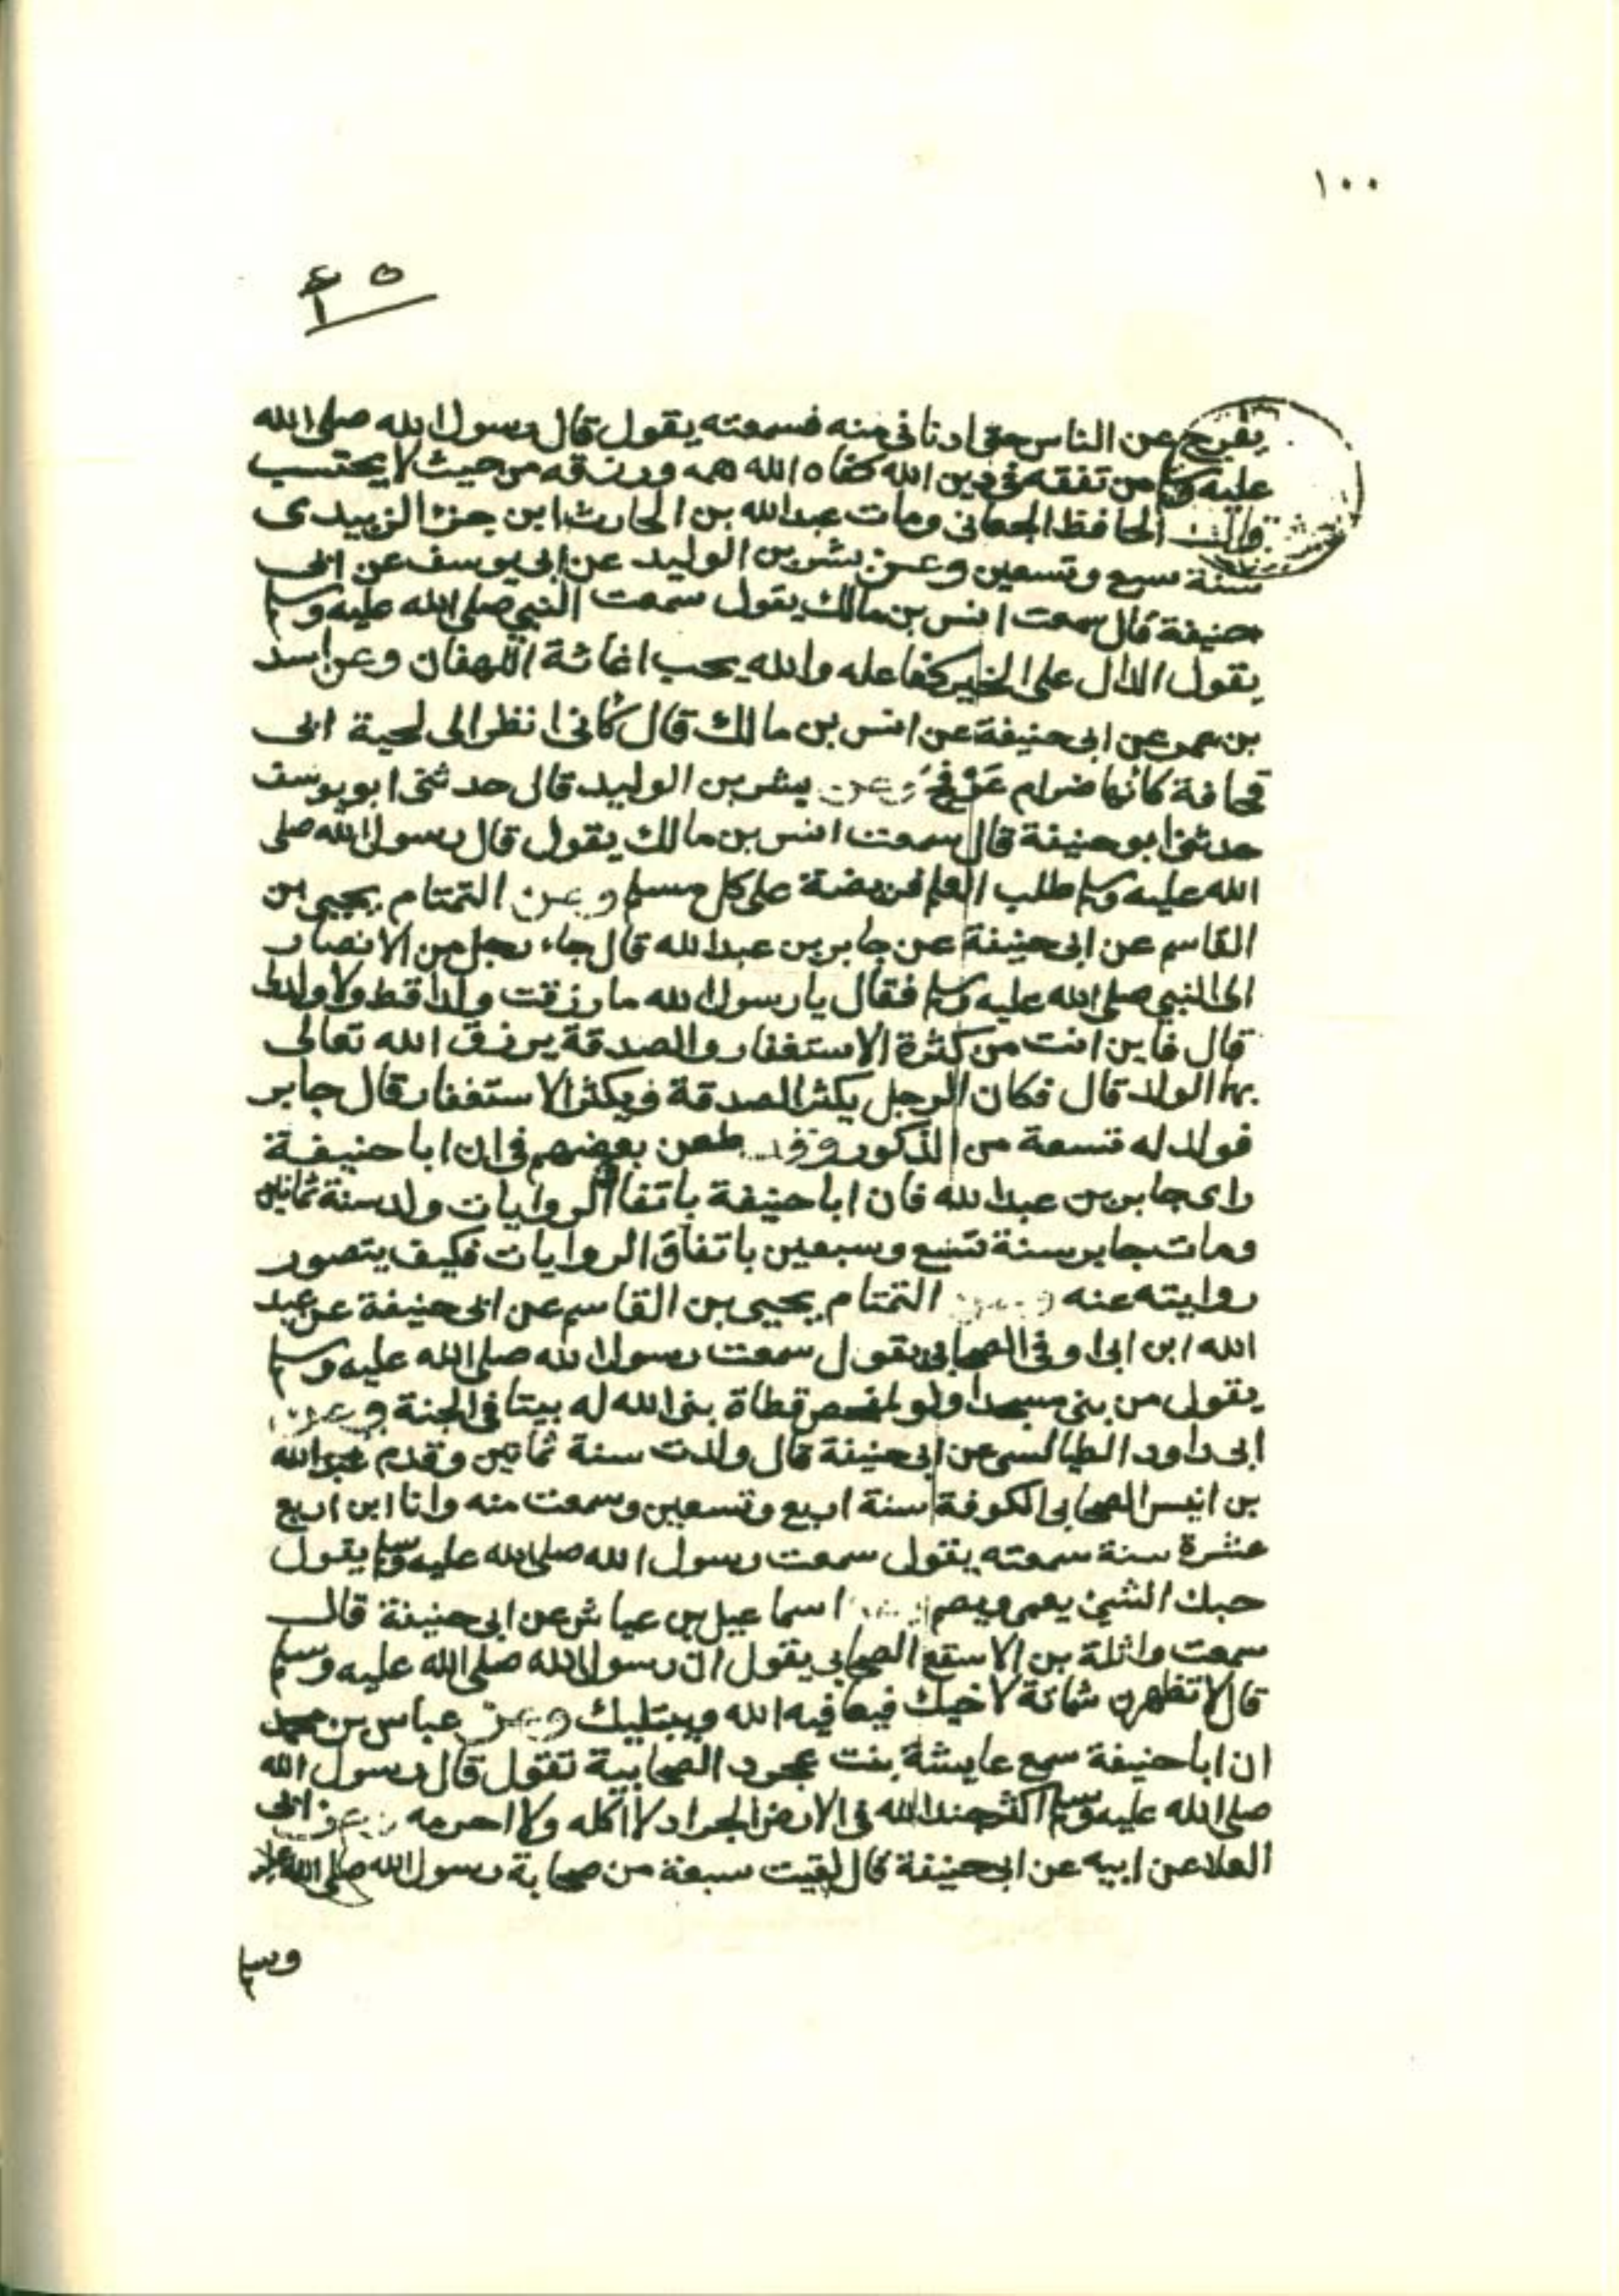 ١٠٠
٤٥
يفرج عن الناس حتى ادنانى منه فسمعته يقول قال رسول الله صلى الله
عليه وسلم من تفقه فى دين الله كفاه الله همه ورزقه من حيث لا يحتسب
وقال الحافظ الجعابى ومات عبدالله بن الحارث ابن جزء الزبيدى
سنة سبع وتسعين وعن بشر بن الوليد عن ابى يوسف عن ابى
حنيفة قال سمعت انس بن مالك يقول سمعت النبي صلى الله عليه وسلم
يقول الدال على الخير كفاعله والله يحب اغاثة اللهفان وعن اسد
بن عمر عن ابى حنيفة عن انس بن مالك قال كأنى انظر الى لحية ابى
قحافة كانها ضرام عَرْفَج وعن بشر بن الوليد قال حدثنى ابو يوسف
حدثنى ابو حنيفة قال سمعت انس بن مالك يقول قال رسول الله صلى
الله عليه وسلم طلب العلم فريضة على كل مسلم وعن التمتام يحيى بن
القاسم عن ابى حنيفة عن جابر بن عبدالله قال جاء رجل من الانصار
الى النبي صلى الله عليه وسلم فقال يا رسول الله ما رزقت ولدا قط ولا ولد لى
قال فاين انت من كثرة الاستغفار والصدقة يرزق الله تعالى
بها الولد قال فكان الرجل يكثر الصدقة ويكثر الاستغفار قال جابر
فولد له تسعة من الذكور وقد طعن بعضهم فى ان ابا حنيفة
راى جابر بن عبدالله فان ابا حنيفة باتفاق الروايات ولد سنة ثمانين
ومات جابر سنة تسع وسبعين باتفاق الروايات فكيف يتصور
روايته عنه وعن التمتام يحيى بن القاسم عن ابى حنيفة عن عبد
الله ابن ابى اوفى الصحابى يقول سمعت رسول الله صلى الله عليه وسلم
يقول من بنى مسجدا ولو كمفحص قطاة بنى الله له بيتا فى الجنة وعن
ابى داود الطيالسى عن ابى حنيفة قال ولدت سنة ثمانين وقدم عبدالله
بن انيس الصحابى الكوفة سنة اربع وتسعين وسمعت منه وانا ابن اربع
عشرة سنة سمعته يقول سمعت رسول الله صلى الله عليه وسلم يقول
حبك الشئ يعمى ويصم اسماعيل بن عياش عن ابى حنيفة قال
سمعت واثلة بن الاسقع الصحابى يقول ان رسول الله صلى الله عليه وسلم
قال لا تظهرن شماتة لاخيك فيعافيه الله ويبتليك وعن عباس بن محمد
ان ابا حنيفة سمع عايشة بنت عجرد الصحابية تقول قال رسول الله
صلى الله عليه وسلم اكثر جند الله فى الارض الجراد لا آكله ولا احرمه وعن ابى
العلا عن ابيه عن ابى حنيفة قال لقيت سبعة من صحابة رسول الله صلى الله عليه
وسلم